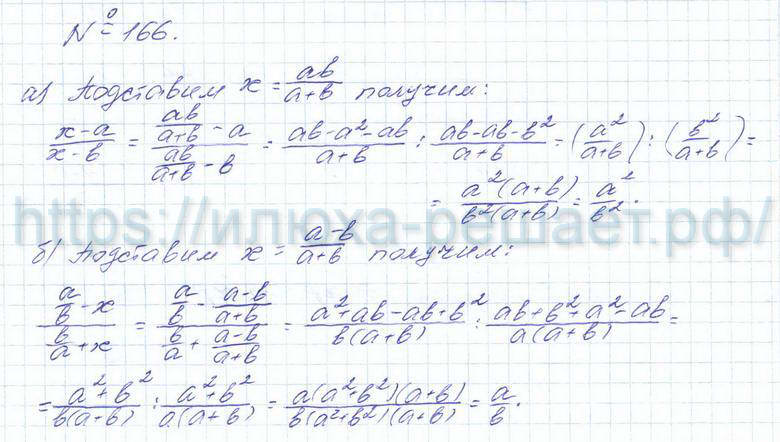 № 166.
а) Подставим x = \frac{ab}{a+b} получим:
\frac{x-a}{x-b} = \frac{\frac{ab}{a+b} - a}{\frac{ab}{a+b} - b} = \frac{ab-a^2-ab}{a+b} : \frac{ab-ab-b^2}{a+b} = (\frac{a^2}{a+b}) : (\frac{b^2}{a+b}) =
= \frac{a^2(a+b)}{b^2(a+b)} = \frac{a^2}{b^2}.
https://илюха-решает.рф/
б) Подставим x = \frac{a-b}{a+b} получим:
\frac{\frac{a}{b} - x}{\frac{b}{a} + x} = \frac{\frac{a}{b} - \frac{a-b}{a+b}}{\frac{b}{a} + \frac{a-b}{a+b}} = \frac{a^2+ab-ab+b^2}{b(a+b)} : \frac{ab+b^2+a^2-ab}{a(a+b)} =
= \frac{a^2+b^2}{b(a+b)} : \frac{a^2+b^2}{a(a+b)} = \frac{a(a^2+b^2)(a+b)}{b(a^2+b^2)(a+b)} = \frac{a}{b}.